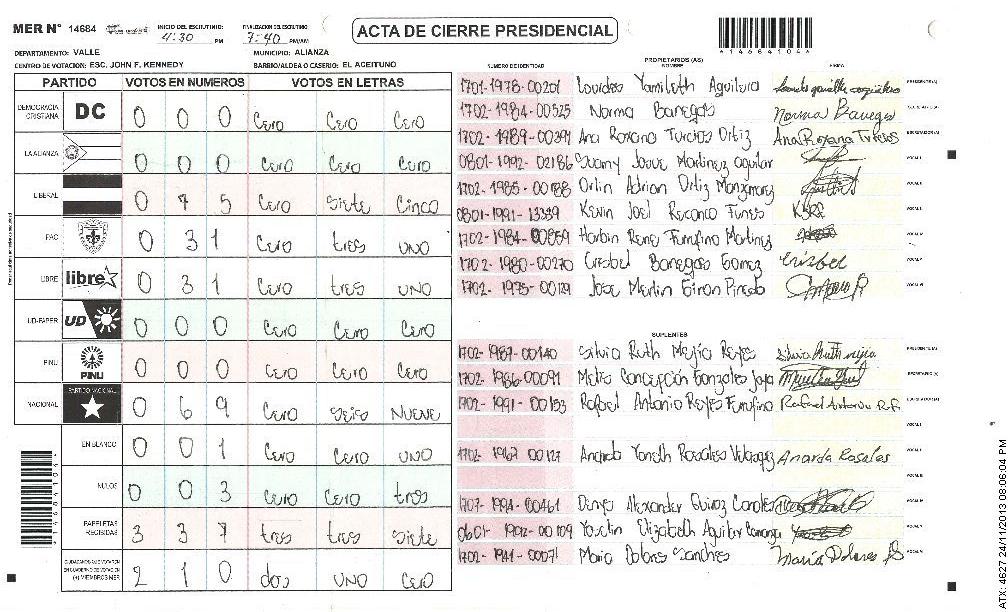 MER Nº 14684 INICIO DEL ESCRUTINIO: 4:30 PM FINALIZACION DEL ESCRUTINIO: 7:40 PM/AM
ACTA DE CIERRE PRESIDENCIAL
*14684104*
DEPARTAMENTO: VALLE MUNICIPIO: ALIANZA
CENTRO DE VOTACION: ESC. JOHN F. KENNEDY BARRIO/ALDEA O CASERIO: EL ACEITUNO
PARTIDO VOTOS EN NUMEROS VOTOS EN LETRAS
DEMOCRACIA CRISTIANA DC 0 0 0 Cero Cero Cero
LA ALIANZA 0 0 0 Cero Cero Cero
LIBERAL 0 7 5 Cero Siete Cinco
PAC 0 31 Cero tres UNO
LIBRE libre 0 3 1 Cero tres UNO
UD-FAPER UD 0 0 0 Cero Cero Cero
PINU PINU 0 0 0 Cero Cero Cero
NACIONAL PARTIDO NACIONAL 0 6 9 Cero Seiso Nueve
EN BLANCO 0 0 1 Cero Cero UNO
NULOS 0 0 3 Cero Cero tres
PAPELETAS RECIBIDAS 3 3 7 tres tres Siete
CIUDADANOS QUE VOTARON EN CUADERNO DE VOTACION (+) MIEMBROS MER 2 1 0 dos UNO Cero
PROPIETARIOS (AS)
NUMERO DE IDENTIDAD NOMBRE FIRMA
1701-1978-00201 Lourdes Yamileth Aguilera PRESIDENTE(A)
1702-1984-00525 Norma Banegas Norma Banegas SECRETARIO(A)
1702-1989-00391 Ana Roxana Turcios Ortiz Ana Roxana Turcios ESCRUTADOR(A)
0801-1992-02186 Josue Martinez aguilar VOCAL I
1702-1985-00188 Orlin Adrian Ortiz VOCAL II
0801-1991-13339 Kevin Joel Funes
1702-1984-00859 Rene Martinez VOCAL IV
1702-1980-00270 Crisbel Banegas Gomez Crisbel VOCAL V
1702-1975-00129 Jose Merlin Giron Pineda VOCAL VI
SUPLENTES
1702-1987-00140 Silvia Ruth Mejia Reyes Silvia Ruth mejia PRESIDENTE(A)
1702-1986-00091 Concepción Gonzales SECRETARIO(A)
1702-1991-00153 Rafael Antonio Reyes Rafael Antonio R.F. ESCRUTADOR(A)
VOCAL I
1702-1967-00127 Ananda Yaneth Rosales Velasquez Ananda Rosales VOCAL II
VOCAL III
1707-1994-00461 Alexander VOCAL IV
0601-1992-00109 Elizabeth Aguilar VOCAL V
1702-1941-00071 Maria Dolores Maria Dolores VOCAL VI
*14684104*
ATX: 4627 24/11/2013 08:06:04 PM